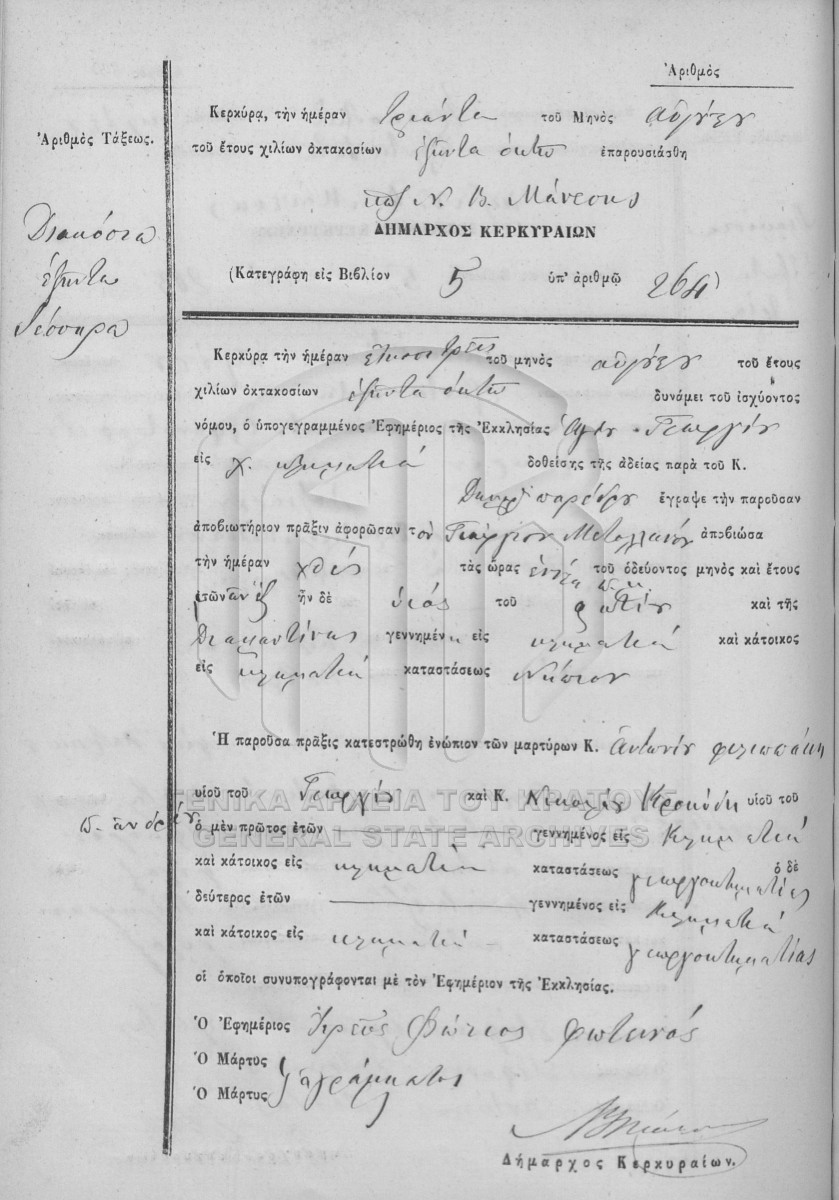 Ἀριθμὸς
Κερκύρα, τὴν ἡμέραν τριάντα τοῦ Μηνὸς
Ἀριθμὸς Τάξεως.
τοῦ ἔτους χιλίων ὀκτακοσίων ἑξῆντα ὀκτὼ ἐπαρουσιάσθη
Ν. Β. Μάνεσης
Διακόσια
ἑξῆντα
τέσσηρα
ΔΗΜΑΡΧΟΣ ΚΕΡΚΥΡΑΙΩΝ
(Κατεγράφη εἰς Βιβλίον 5 ὑπ' ἀριθμῷ 264)
Κερκύρα τὴν ἡμέραν εἴκοσι τρεῖς τοῦ μηνὸς τοῦ ἔτους
χιλίων ὀκτακοσίων ἑξῆντα ὀκτὼ δυνάμει τοῦ ἰσχύοντος
νόμου, ὁ ὑπογεγραμμένος Ἐφημέριος τῆς Ἐκκλησίας Ἁγίου Γεωργίου
εἰς χ. κληματιά δοθείσης τῆς ἀδείας παρὰ τοῦ Κ.
παρέδρου ἔγραψε τὴν παροῦσαν
ἀποβιωτήριον πρᾶξιν ἀφορῶσαν τὸν Γεώργιον Μεταλληνόν ἀποβιώσα
τὴν ἡμέραν χθές τὰς ὥρας ἐννέα τοῦ ὁδεύοντος μηνὸς καὶ ἔτους
ἐτῶν ἦν δὲ υἱός τοῦ φωτίου καὶ τῆς
Διαμαντίνας γεννημέν εἰς κληματιά καὶ κάτοικος
εἰς κληματιά καταστάσεως Νήπιον
Ἡ παροῦσα πρᾶξις κατεστρώθη ἐνώπιον τῶν μαρτύρων Κ. Ἀντωνίου φιλιππάκη
υἱοῦ τοῦ Γεωργίου καὶ Κ. Νικολάου Κροκίδη υἱοῦ τοῦ
ὁ μὲν πρῶτος ἐτῶν γεννημένος εἰς Κληματιά
καὶ κάτοικος εἰς κληματιά καταστάσεως γεωργοκτηματίας ὁ δὲ
δεύτερος ἐτῶν γεννημένος εἰς Κληματιά
καὶ κάτοικος εἰς κληματιά καταστάσεως γεωργοκτηματίας
οἱ ὁποῖοι συνυπογράφονται μὲ τὸν Ἐφημέριον τῆς Ἐκκλησίας.
Ὁ Ἐφημέριος Ἱερεὺς Φώτιος φωτεινός
Ὁ Μάρτυς
Ὁ Μάρτυς ἀγράμματοι
Δήμαρχος Κερκυραίων.
ΓΕΝΙΚΑ ΑΡΧΕΙΑ ΤΟΥ ΚΡΑΤΟΥΣ
GENERAL STATE ARCHIVES